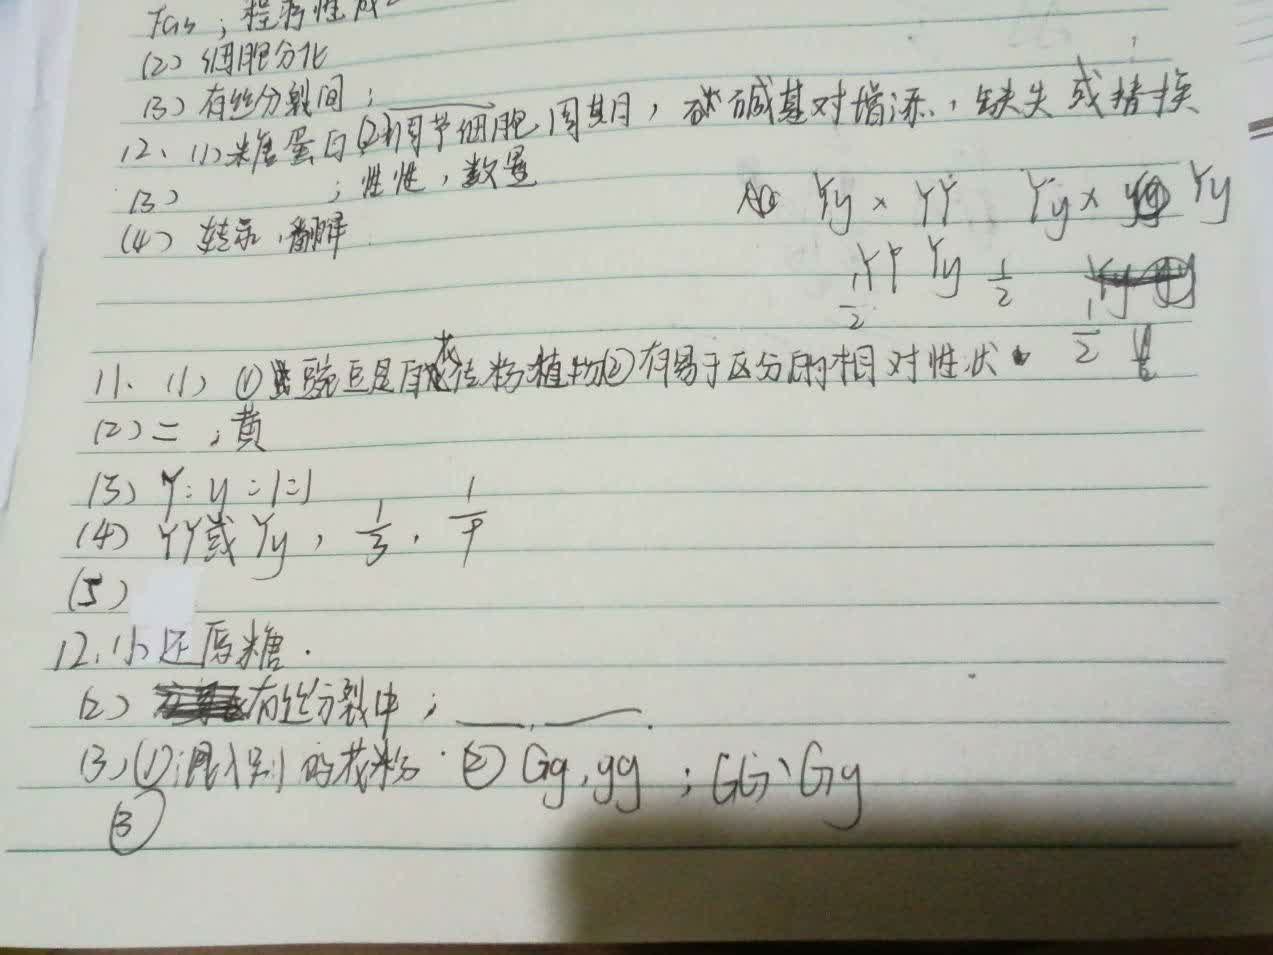 Fas；程序性死亡
(2) 细胞分化
(3) 有丝分裂间；
12、(1) 糖蛋白 (2) 调节细胞周期，碱基对增添、缺失或替换
(3) ；性，数量
(4) 转录、翻译
Yy × YY Yy × Yy
YY Yy 1/2
1/2 1/2
11、(1) ① 豌豆是自花传粉植物 ② 有易于区分的相对性状
(2) 二；黄
(3) Y：y = 1：1
(4) YY或Yy，1/3，1/9
(5)
12、(1) 还原糖.
(2) 有丝分裂中；
13、(1) 混入别的花粉. ② Gg、gg；GG、Gg
③